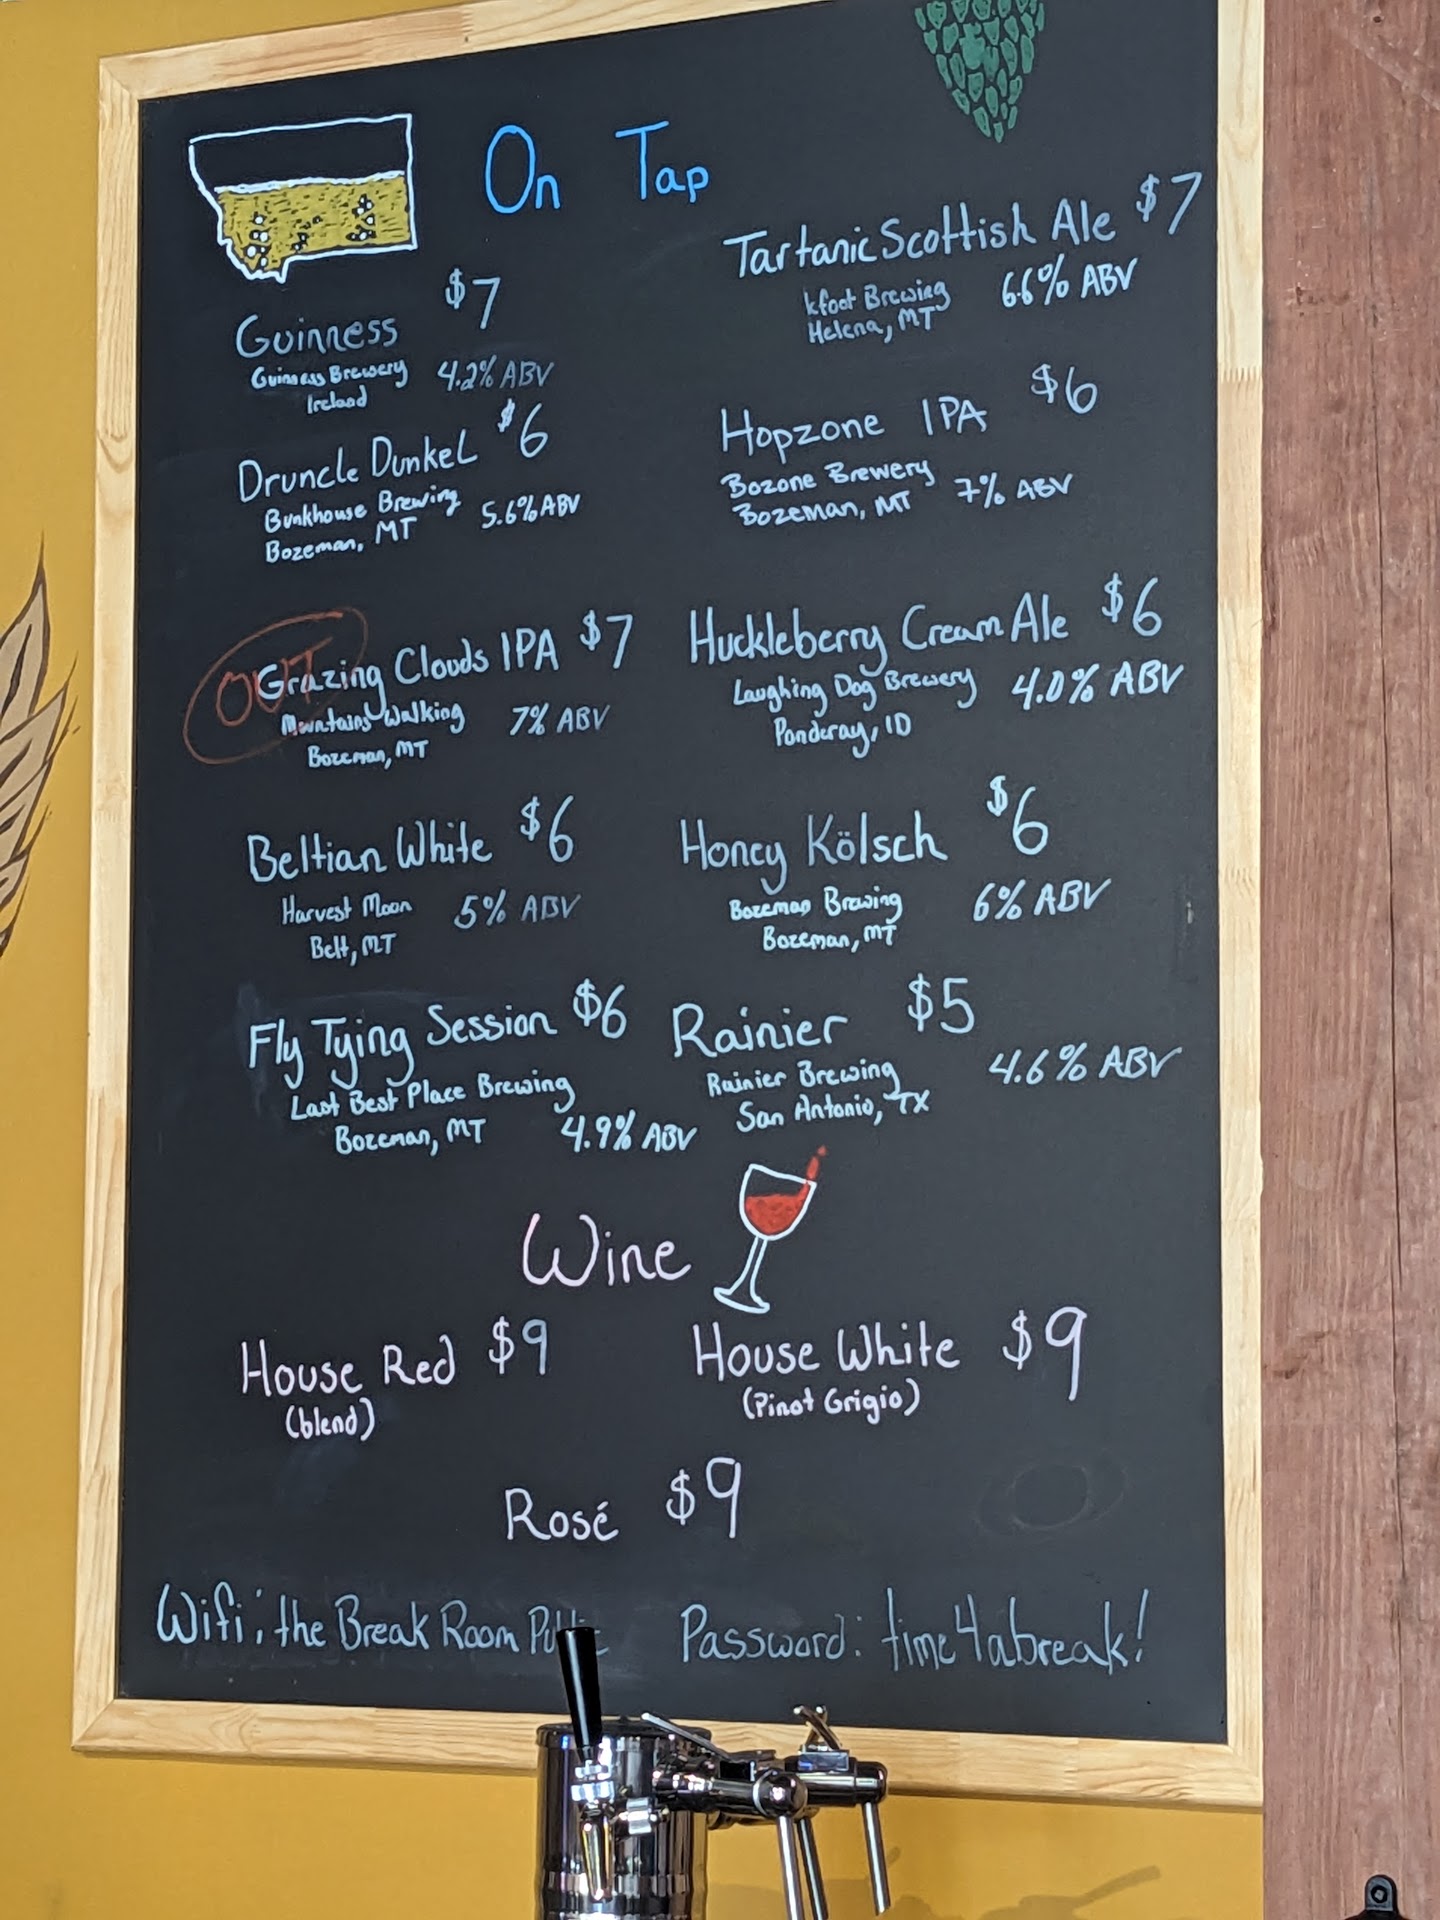 On Tap
Guinness $7
Guinness Brewery 4.2% ABV
Ireland
Druncle Dunkel $6
Bunkhouse Brewing 5.6% ABV
Bozeman, MT
OUT
Grazing Clouds IPA $7
Mountains Walking 7% ABV
Bozeman, MT
Beltian White $6
Harvest Moon 5% ABV
Belt, MT
Fly Tying Session $6
Last Best Place Brewing
Bozeman, MT 4.9% ABV
Tartanic Scottish Ale $7
kfoot Brewing 6.6% ABV
Helena, MT
Hopzone IPA $6
Bozone Brewery 7% ABV
Bozeman, MT
Huckleberry Cream Ale $6
Laughing Dog Brewery 4.0% ABV
Ponderay, ID
Honey Kölsch $6
Bozeman Brewing 6% ABV
Bozeman, MT
Rainier $5
Rainier Brewing 4.6% ABV
San Antonio, TX
Wine
House Red $9
(blend)
House White $9
(Pinot Grigio)
Rosé $9
Wifi: the Break Room Password: time4abreak!